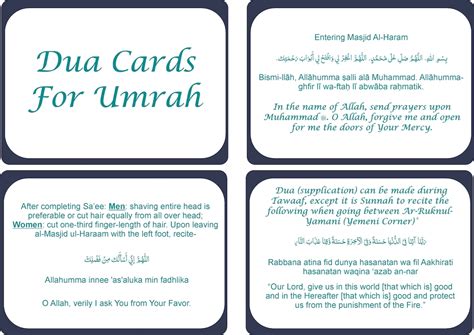 Dua Cards
For Umrah
Entering Masjid Al-Haram
بِسْمِ اللَّهِ، اللَّهُمَّ صَلِّ عَلَى مُحَمَّدٍ، اللَّهُمَّ اغْفِرْ لِي وَافْتَحْ لِي أَبْوَابَ رَحْمَتِكَ.
Bismi-llāh, Allāhumma ṣalli alā Muhammad. Allāhumma-
ghfir lī wa-ftaḥ lī abwāba raḥmatik.
In the name of Allah, send prayers upon
Muhammad ﷺ. O Allah, forgive me and open
for me the doors of Your Mercy.
After completing Sa'ee: Men: shaving entire head is
preferable or cut hair equally from all over head;
Women: cut one-third finger-length of hair. Upon leaving
al-Masjid ul-Haraam with the left foot, recite-
اللَّهُمَّ إِنِّي أَسْأَلُكَ مِنْ فَضْلِكَ
Allahumma innee 'as'aluka min fadhlika
O Allah, verily I ask You from Your Favor.
Dua (supplication) can be made during
Tawaaf, except it is Sunnah to recite the
following when going between Ar-Ruknul-
Yamani (Yemeni Corner)"
رَبَّنَا آتِنَا فِي الدُّنْيَا حَسَنَةً وَفِي الْآخِرَةِ حَسَنَةً وَقِنَا عَذَابَ النَّارِ
Rabbana atina fid dunya hasanatan wa fil Aakhirati
hasanatan waqina 'azab an-nar
"Our Lord, give us in this world [that which is] good
and in the Hereafter [that which is] good and protect
us from the punishment of the Fire."